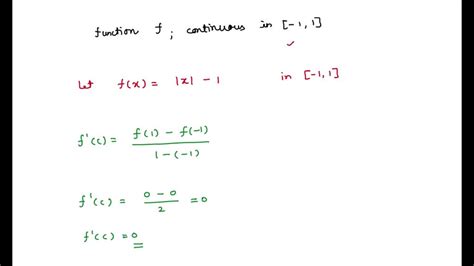 function f ; continuous in [-1, 1]
Let f(x) = |x| - 1 in [-1, 1]
f'(c) = f(1) - f(-1) / 1 - (-1)
f'(c) = 0 - 0 / 2 = 0
f'(c) = 0